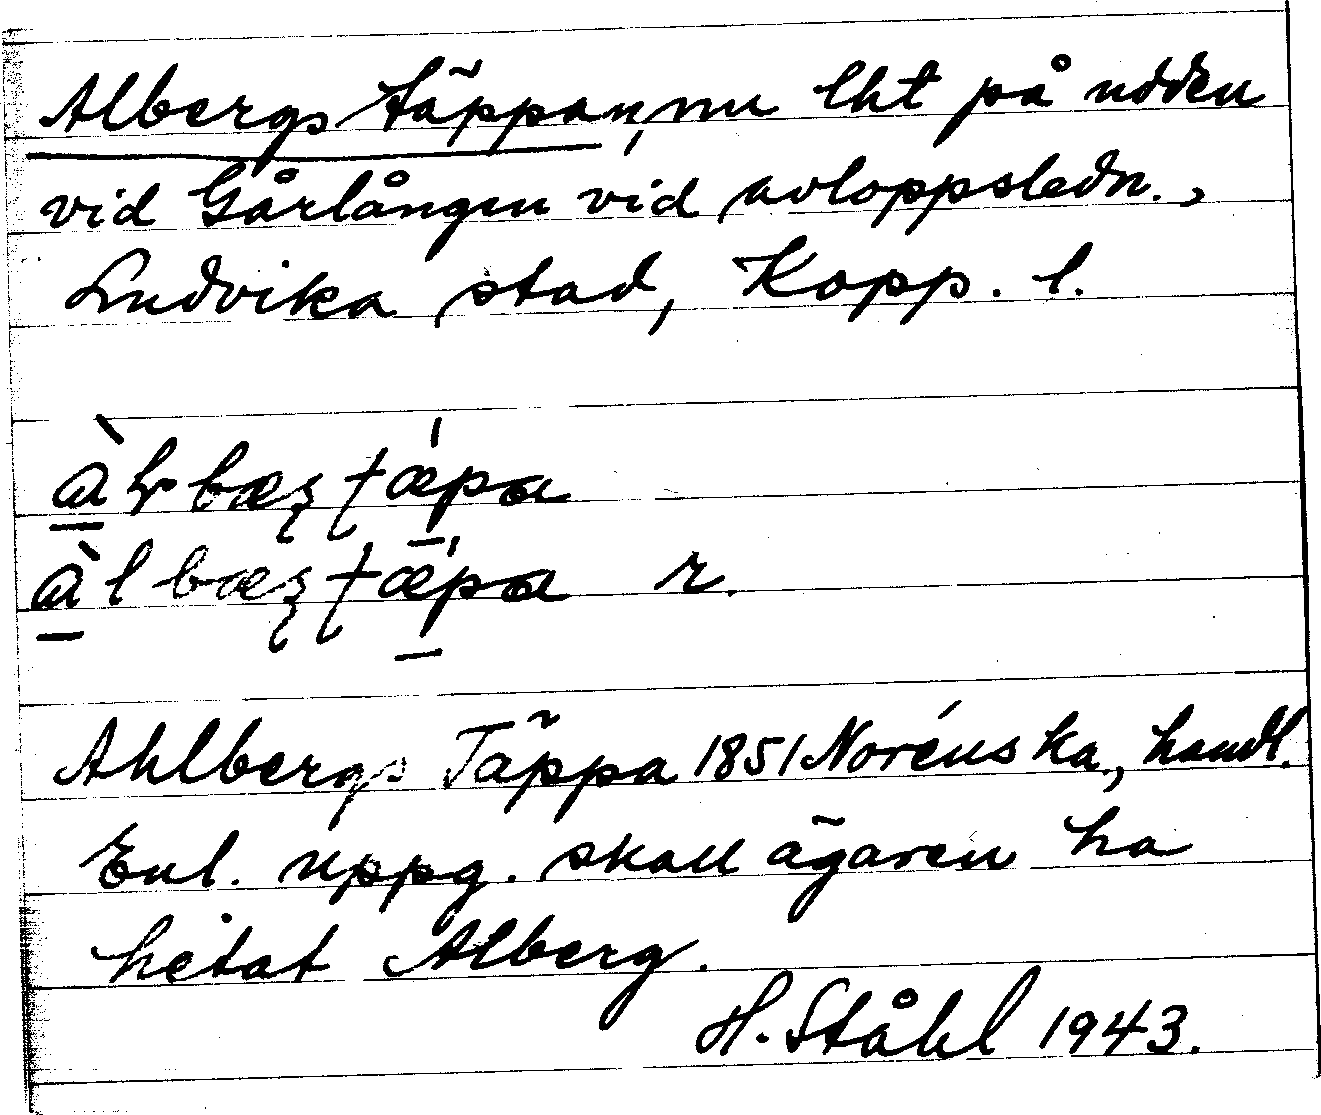 Albergs täppan, nu lht på udden
vid Gårlången vid avloppsledn.,
Ludvika stad, Kopp. l.
r.
Ahlbergs Täppa 1851 Noréns ka., handl.
Enl. uppg. skall ägaren ha
hetat Alberg.
H. Ståhl 1943.